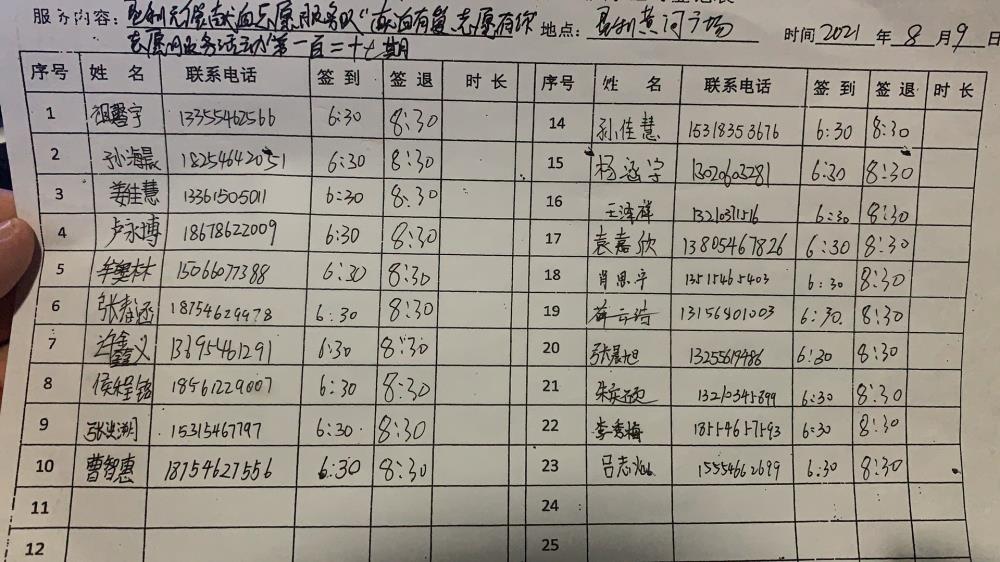 服务内容：垦利无偿献血志愿服务队"献血有益 志愿有你 地点：垦利黄河广场 时间 2021 年 8 月 9 日
志愿服务活动"第一百二十七期
序号 姓 名 联系电话 签 到 签 退 时 长 序号 姓 名 联系电话 签 到 签 退 时 长
1 祖馨宇 13355462566 6:30 8:30 14 孙佳慧 15318353676 6:30 8:30
2 孙海晨 18254642051 6:30 8:30 15 杨涵宇 13020603281 6:30 8:30
3 姜佳慧 13361505011 6:30 8:30 16 王泽祥 13210371516 6:30 8:30
4 卢永博 18678622009 6:30 8:30 17 袁嘉欣 13805467826 6:30 8:30
5 牟奕林 15066077388 6:30 8:30 18 肖思宇 13515465403 6:30 8:30
6 张春涵 18754629978 6:30 8:30 19 薛云琦 13156801003 6:30 8:30
7 许鑫义 13695461291 6:30 8:30 20 张晨旭 13255619486 6:30 8:30
8 侯程铭 18561229007 6:30 8:30 21 13210345899 6:30 8:30
9 15315467797 6:30 8:30 22 李秀梅 18554657593 6:30 8:30
10 曹智惠 18754627556 6:30 8:30 23 吕志 15554662699 6:30 8:30
11 24
12 25